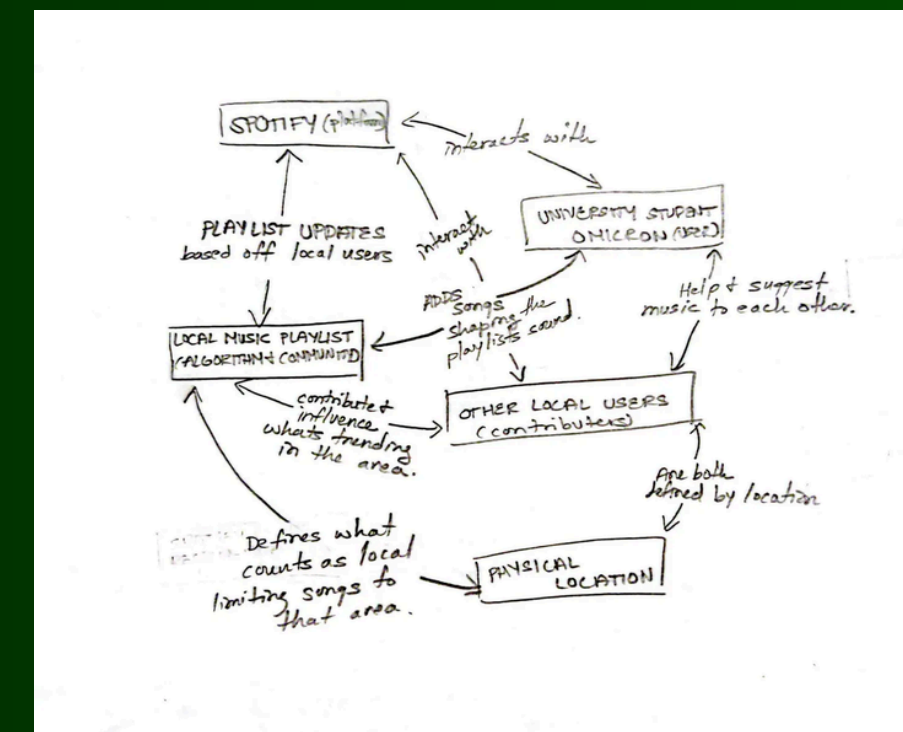 SPOTIFY (platform)
interacts with
UNIVERSITY STUDENT
OMICRON (USER)
PLAYLIST UPDATES
based off local users
interact
with
ADDS
songs
shaping the
playlists sound.
Help & suggest
music to each other.
LOCAL MUSIC PLAYLIST
(ALGORITHM & COMMUNITY)
contribute &
influence
whats trending
in the area.
OTHER LOCAL USERS
(contributers)
Are both
defined by location
Defines what
counts as local
limiting songs to
that area.
PHYSICAL
LOCATION